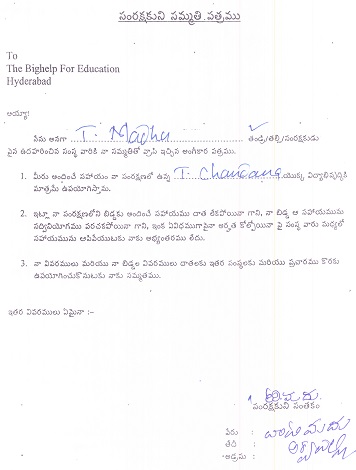 సంరక్షకుని సమ్మతి పత్రము
To
The Bighelp For Education
Hyderabad
అయ్యా!
నేను అనగా T. Madhu తండ్రి/తల్లి/సంరక్షకుడు
పైన ఉదహరించిన సంస్థ వారికి నా సమ్మతితో వ్రాసి ఇచ్చిన అంగీకార పత్రము.
1. మీరు అందించే సహాయం నా సంరక్షణలో ఉన్న T. Chandana యొక్క విద్యాభివృద్ధికి
మాత్రమే ఉపయోగిస్తాము.
2. ఇట్లా నా సంరక్షణలోని బిడ్డకు అందించే సహాయము దాత లేకపోయినా గాని, నా బిడ్డ ఆ సహాయమును
సద్వినియోగము పరచకపోయినా గాని, ఇంక ఏవిధముగానైనా అర్హత కోల్పోయినా పై సంస్థ వారు మధ్యలో
సహాయమును ఆపివేయుటకు నాకు అభ్యంతరము లేదు.
3. నా వివరములు మరియు నా బిడ్డల వివరములు దాతలకు ఇతర సంస్థలకు మరియు ప్రచారము కొరకు
ఉపయోగించుకొనుటకు నాకు సమ్మతము.
ఇతర వివరములు ఏమైనా :-
సంరక్షకుని సంతకం
పేరు :
తేదీ :
అడ్రసు :